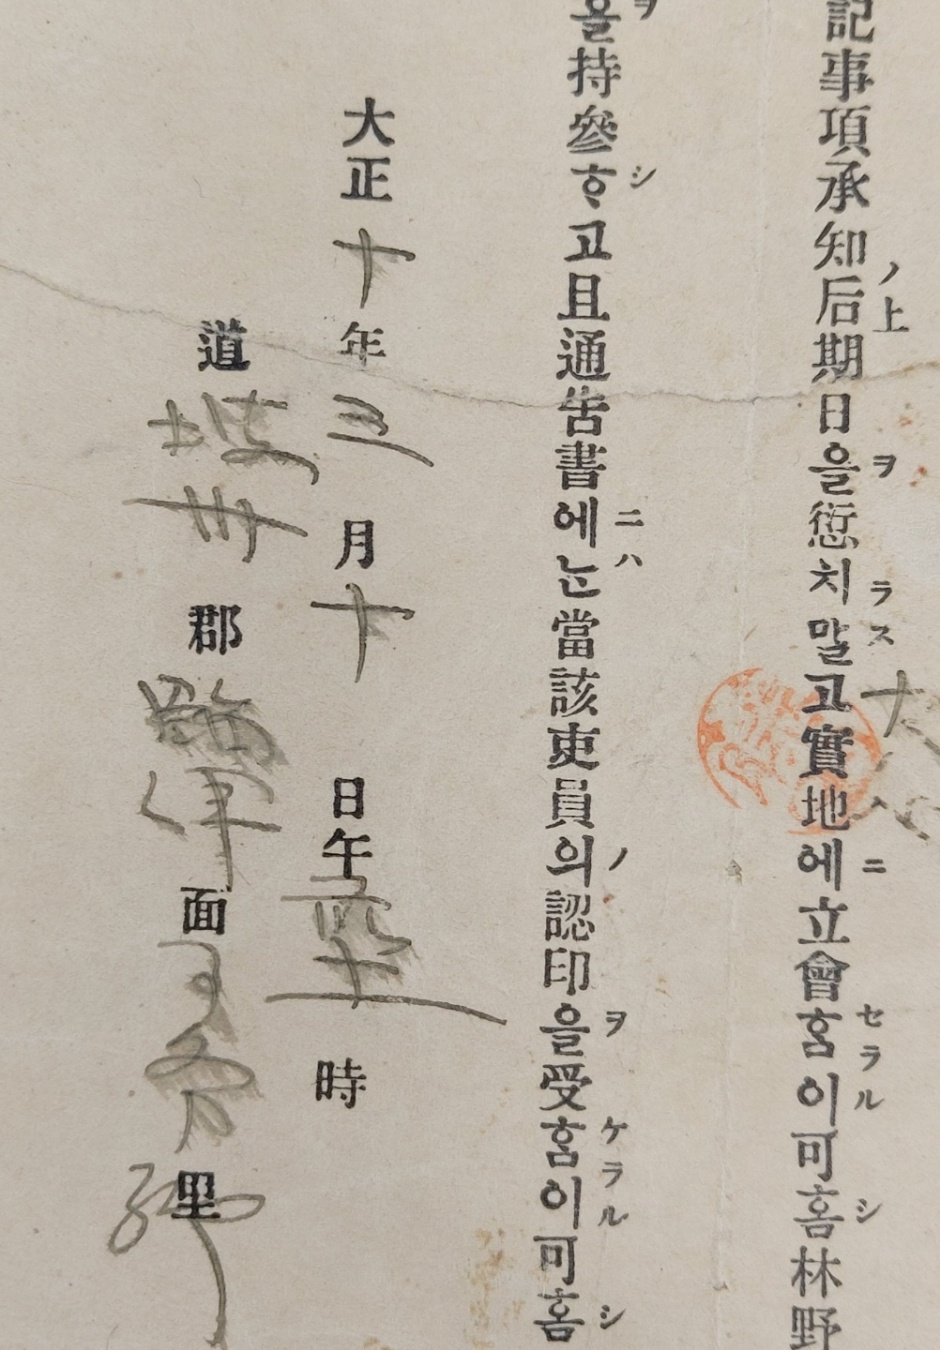 記事項承知后期日을愆치말고實地에立會홈이可홈林野
ノ上 ヲ ラス ニ セラル シ
十八
을持參ᄒᆞ고且通告書에ᄂᆞᆫ當該吏員의認印을受홈이可홈
ヲ シ ニハ ノ ヲ ケラル シ
大正十年三月十 日午 時
道 州郡 面 里